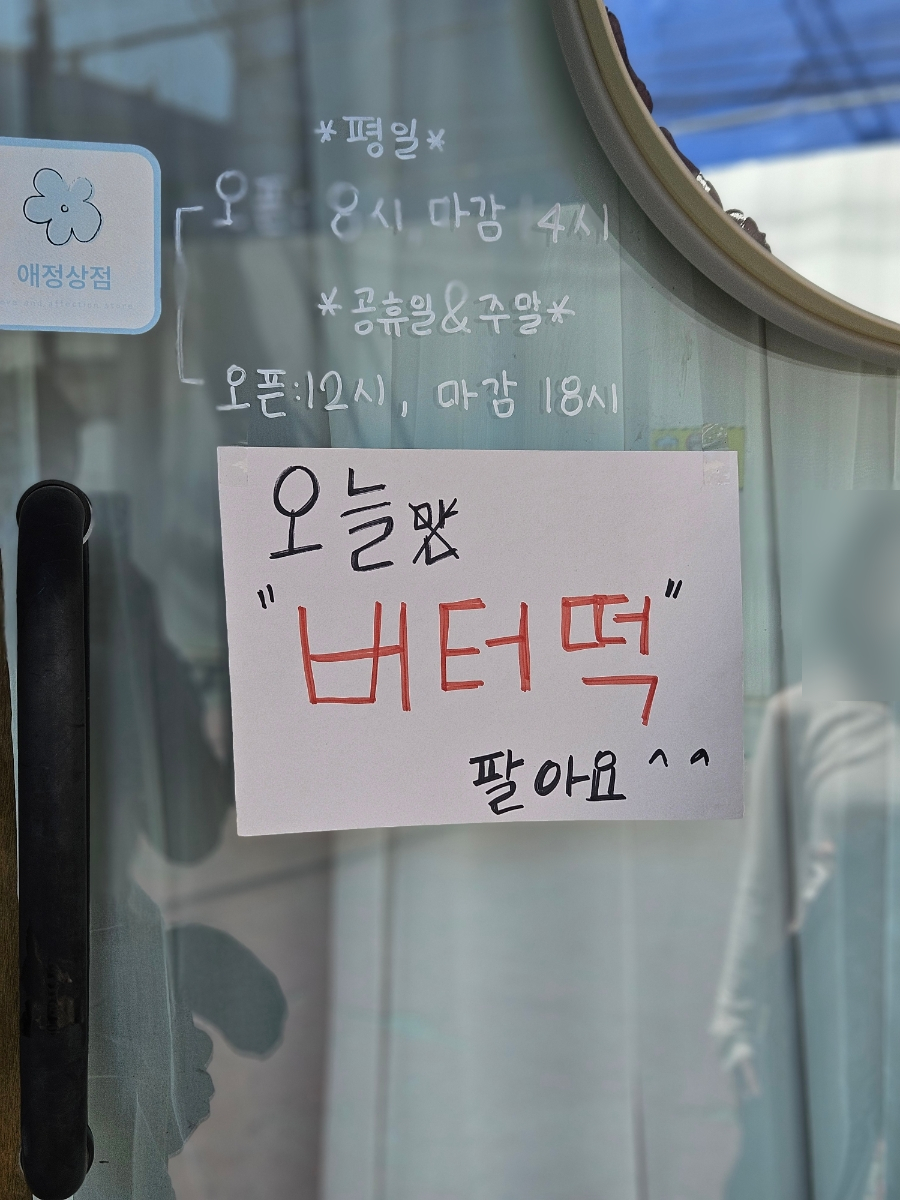 *평일*
오픈: 8시, 마감 4시
*공휴일&주말*
오픈:12시, 마감 18시
애정상점
오늘
"버터떡"
팔아요^^